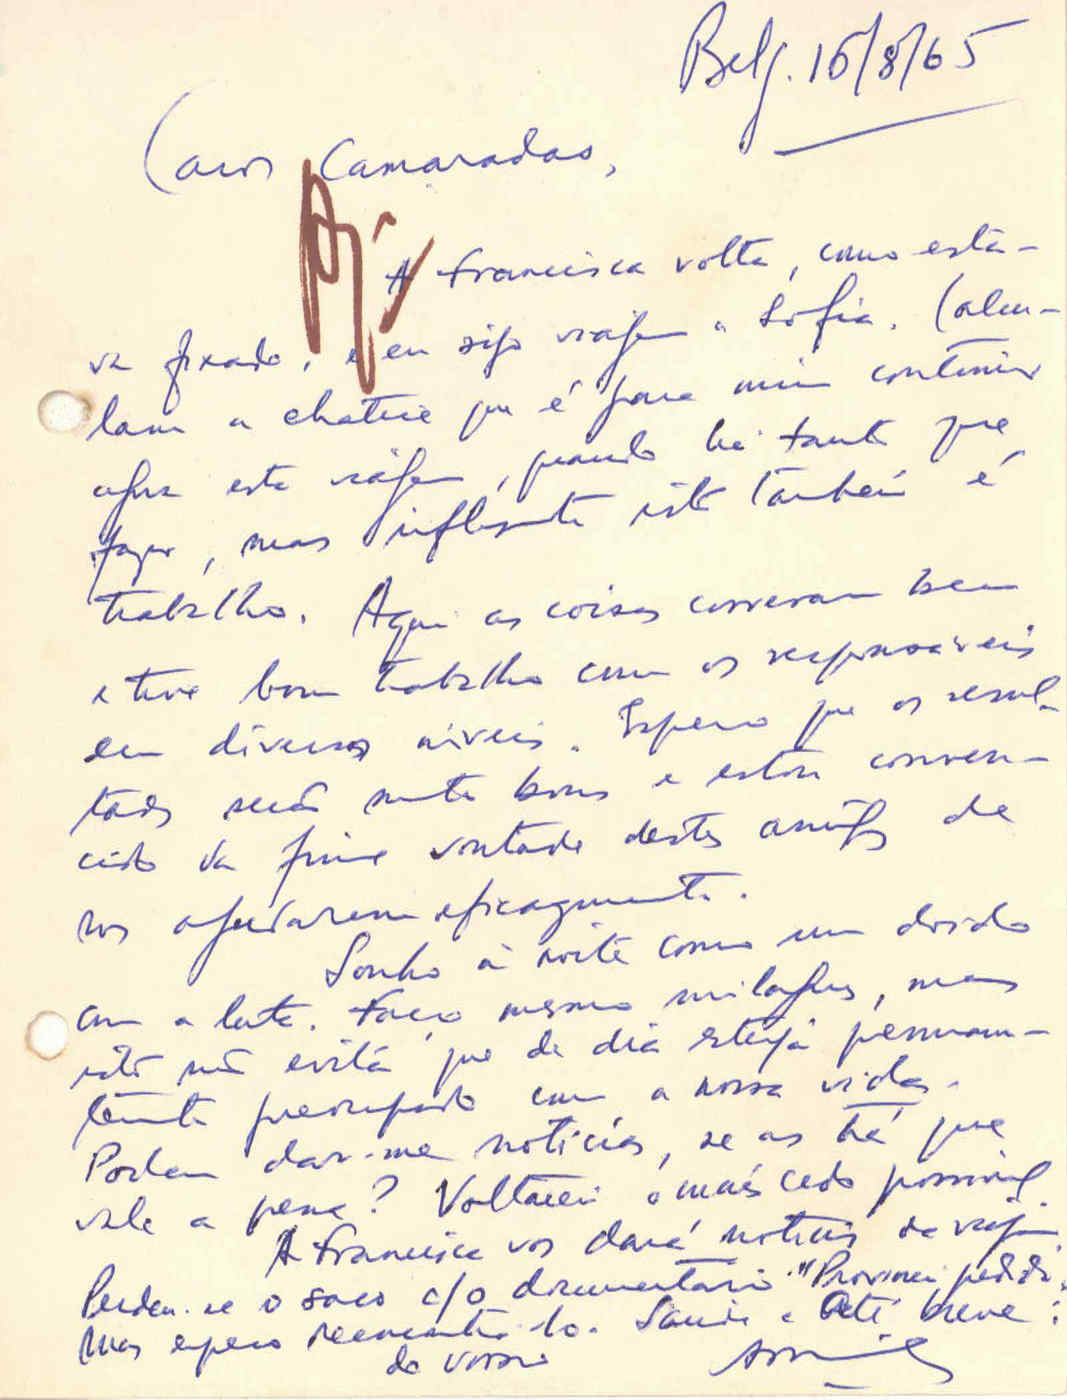 Belg. 16/8/65
Caros Camaradas,
A Francisca volta, como esta-
va fixado, e eu sigo viagem a Sofia. Calcu-
lam a chatice que é para mim continuar
agora esta viagem, quando há tanto que
fazer, mas infelizmente isto também é
trabalho. Aqui as coisas correram bem
e tive bom trabalho com os responsáveis
em diversos níveis. Espero que os resul-
tados serão muito bons e estou conven-
cido da firme vontade destes amigos de
nos ajudarem eficazmente.
Sonho à noite como um doido
com a luta. Faço mesmo milagres, mas
isto não evita que de dia esteja permanen-
temente preocupado com a nossa vida.
Podem dar-me notícias, se as há que
vale a pena? Voltarei o mais cedo possível.
A Francisca vos dará notícias da viagem.
Perdeu-se o saco c/o documentário
Mas espero reencontrá-lo. Saúde e até breve:
do vosso